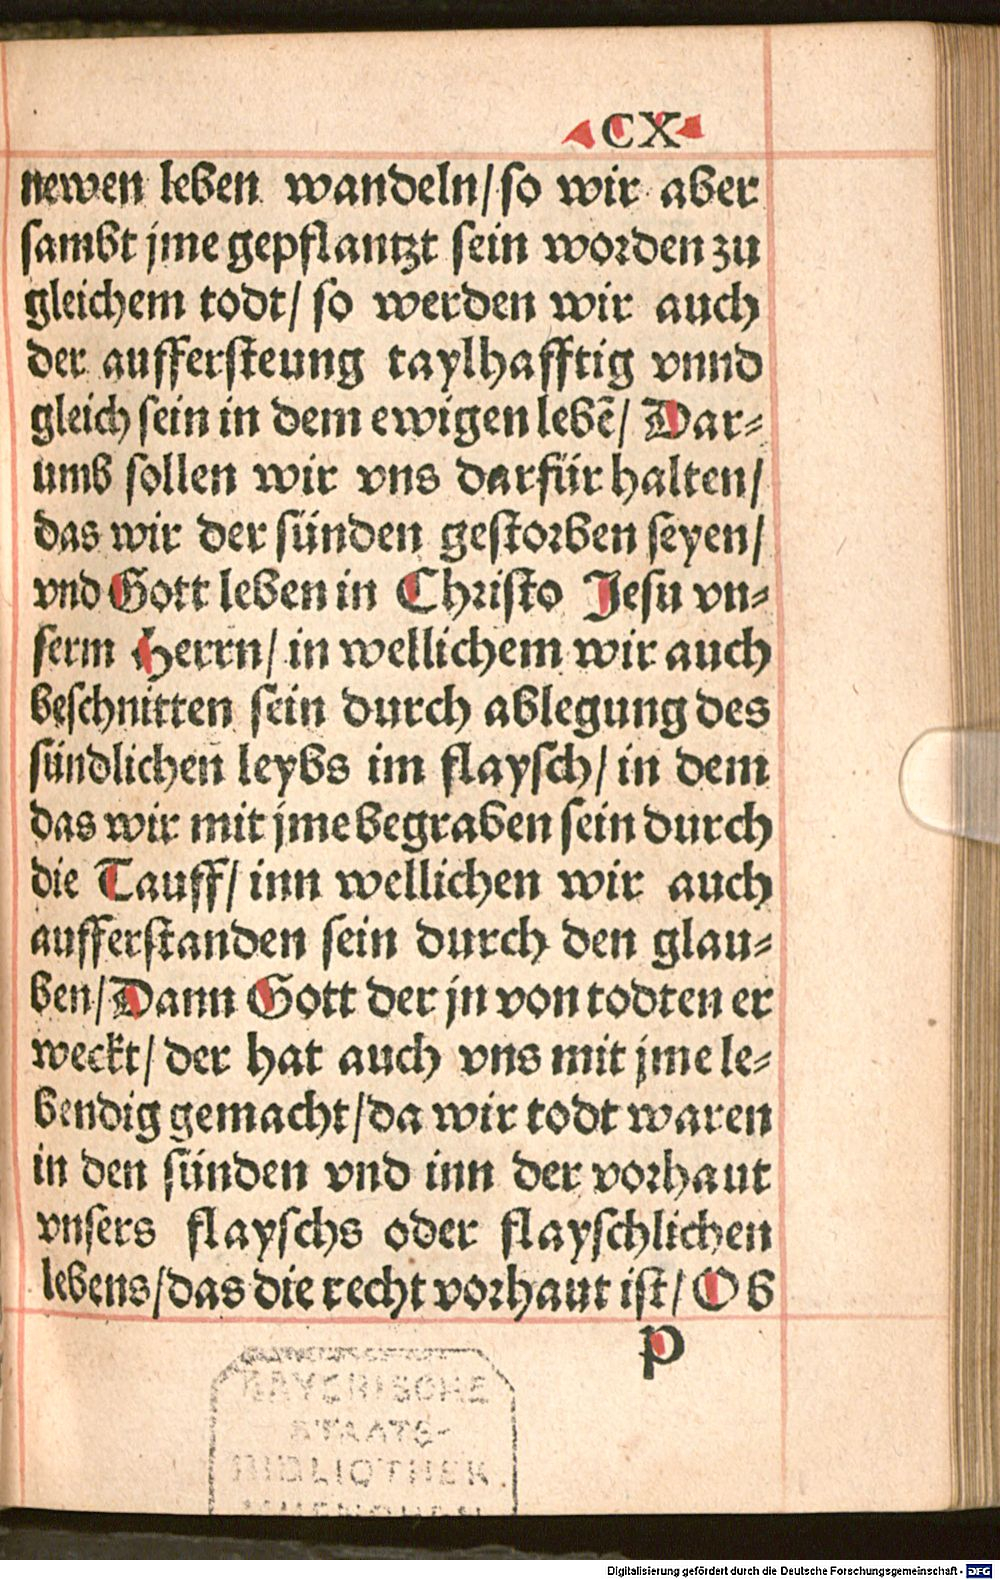 CX
newen leben wandeln/ so wir aber
sambt jme gepflantzt sein worden zu
gleichem todt/ so werden wir auch
der auffersteung taylhafftig vnnd
gleich sein in dem ewigen lebē/ Dar⸗
umb sollen wir vns darfür halten/
das wir der sünden gestorben seyen/
vnd Gott leben in Christo Jesu vn⸗
serm Herrn/ in wellichem wir auch
beschnitten sein durch ablegung des
sündlichen leybs im flaysch/ in dem
das wir mit jme begraben sein durch
die Tauff/ inn wellichen wir auch
aufferstanden sein durch den glau⸗
ben/ Dann Gott der jn von todten er
weckt/ der hat auch vns mit jme le⸗
bendig gemacht/ da wir todt waren
in den sünden vnd inn der vorhaut
vnsers flayschs oder flayschlichen
lebens/ das die recht vorhaut ist/ Ob
p
BAYERISCHE
STAATS-
BIBLIOTHEK
MUENCHEN
Digitalisierung gefördert durch die Deutsche Forschungsgemeinschaft - DFG